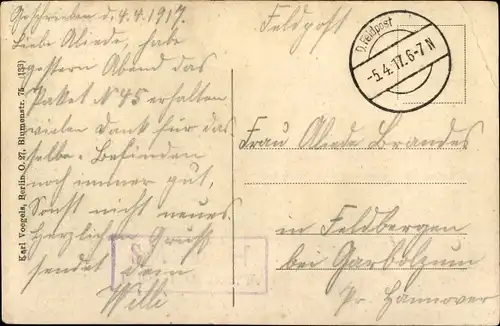 Geschrieben d. 4.4.1917.
Liebe Aliede, habe
gestern Abend das
Paket N 45 erhalten
vielen Dank für das
selbe. Befinden
noch immer gut,
Sonst nicht neues
Herzlichen Gruß
sendet dein
Willi
Feldpost
D. Feldpost
-5.4.17.6-7N
Frau Aliede Brandes
in Feldbergen
bei Garbolzum
Pr. Hannover
Karl Voegels, Berlin O. 27, Blumenstr. 75 (133)